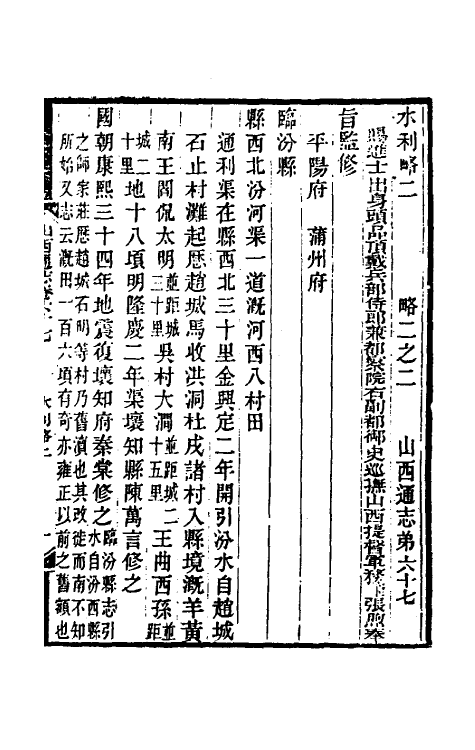 水利略二　略二之二　山西通志第六十七
賜進士出身頭品頂戴兵部侍郎兼都察院右副都御史巡撫山西提督軍務張煦奉
旨監修
平陽府　蒲州府
臨汾縣
縣西北汾河渠一道溉河西八村田
通利渠在縣西北三十里金興定二年開引汾水自趙城
石止村灘起歷趙城馬收洪洞杜戌諸村入縣境溉羊黃
南王閻侃太明並距城三十里吳村大澗並距城二十五里王曲西孫並距
城二十里地十八頃明隆慶二年渠壞知縣陳萬言修之
國朝康熙三十四年地震復壞知府秦棠修之臨汾縣志引水自汾西縣
之師家莊歷趙城石明等村乃舊瀆也其改徙而南不知
所始又志云溉田一百六頃有奇亦雍正以前之舊額也
山西通志卷六十七　水利略二　一